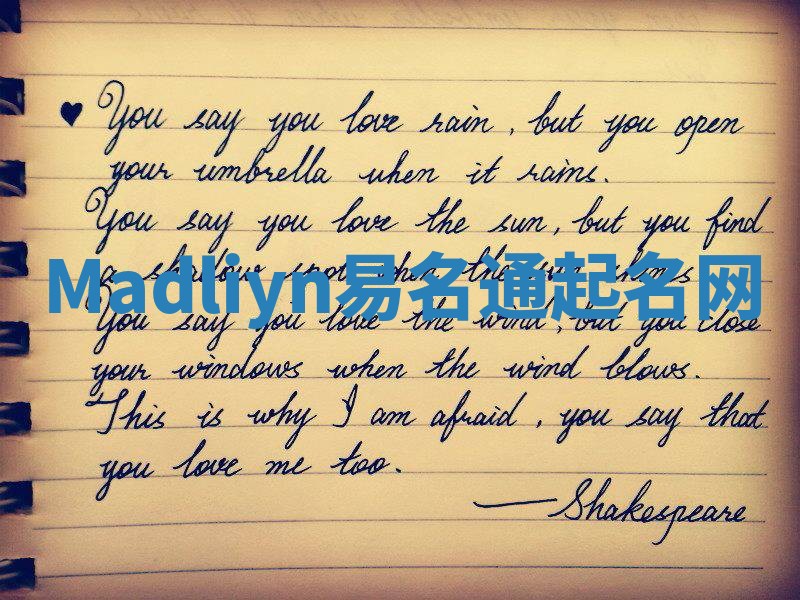 ♥ You say you love rain, but you open
your umbrella when it rains.
You say you love the sun, but you find
a shadow spot when the sun shines
Madliyn易名通起名网
You say you love the wind, but you close
your windows when the wind blows.
This is why I am afraid, you say that
you love me too.
— Shakespeare